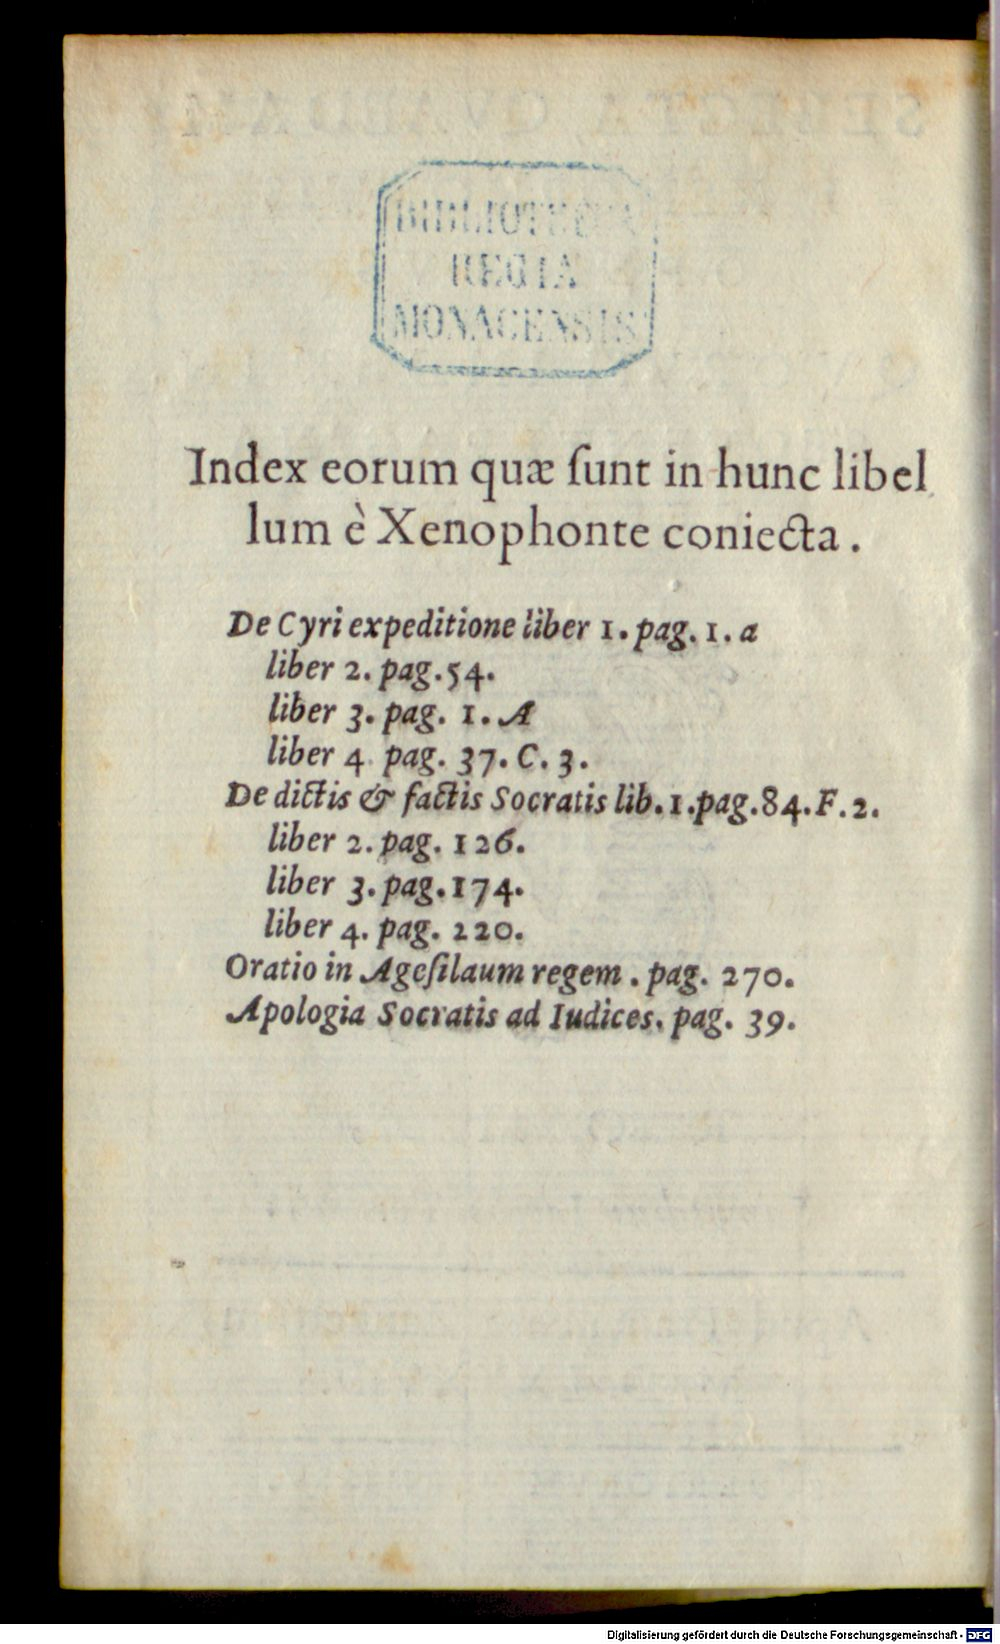 BIBLIOTECA
REGIA
MONACENSIS
Index eorum quæ ſunt in hunc libel
lum è Xenophonte coniecta.
De Cyri expeditione liber 1. pag. 1. a
liber 2. pag. 54.
liber 3. pag. 1. A
liber 4 pag. 37. C. 3.
De dictis & factis Socratis lib. 1. pag. 84. F. 2.
liber 2. pag. 126.
liber 3. pag. 174.
liber 4. pag. 220.
Oratio in Ageſilaum regem. pag. 270.
Apologia Socratis ad Iudices. pag. 39.
Digitalisierung gefördert durch die Deutsche Forschungsgemeinschaft - DFG